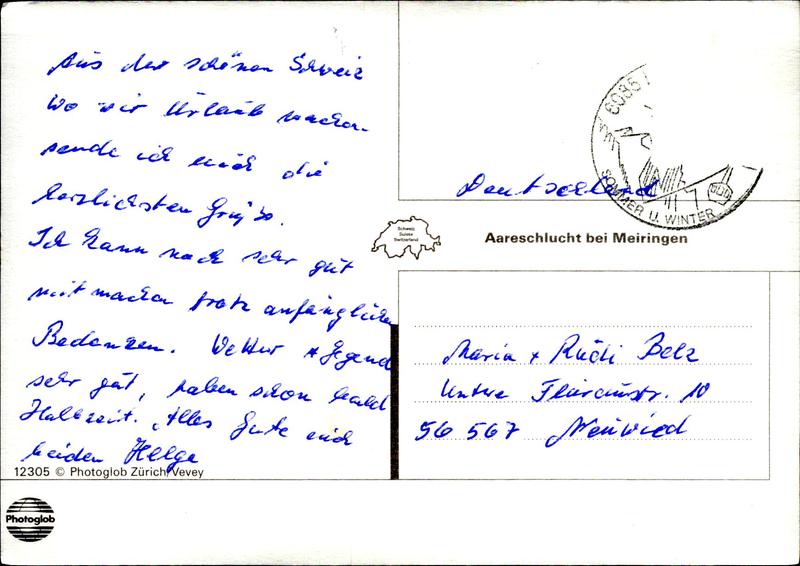 Aus der schönen Schweiz
wo wir Urlaub machen
sende ich euch die
herzlichsten Grüße.
Ich kann noch sehr gut
mit machen trotz anfänglichen
Bedenken. Wetter + Gegend
sehr gut, haben schon bald
Halbzeit. Alles Gute euch
beiden Helga
12305 © Photoglob Zürich/Vevey
Photoglob
Schweiz
Suisse
Switzerland
SOMMER U. WINTER
Deutschland
Aareschlucht bei Meiringen
Maria + Rudi Belz
Untere Str. 10
56 567 Neuwied